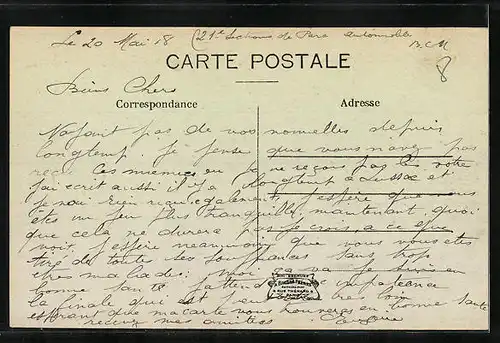 Le 20 Mai 18 (21e Sections de Parc automobile
B.C.M
8
CARTE POSTALE
Biens Chers
Correspondance
Adresse
N'ayant pas de vos nouvelles depuis
longtemp. Je pense que vous navez pas
reçu les miennes je ne reçois pas les votre
j'ai ecrit aussi il y a longtemp a et
je nai rien reçu egalement. J'espère que vous
êtes un peu plus tranquille, maintenant, quoi
que cela ne durera pas je crois, a ce que
voit. J'espère neanmoins que vous vous êtes
tiré de toute les souffrances sans trop
être malade; moi ça va je suis en
bonne santé j'attend avec impatience
la finale qui est peut être très loin
esperant que ma carte vous trouvera en bonne santé
recevez mes amitiés